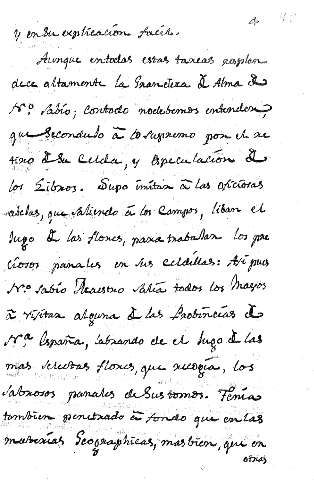 y en su explicación facil.
Aunque entodas estas tareas resplan
dece altamente la Grandeza de Alma de
Nrō. Sabio; contodo nodebemos entender,
que Secondujo à lo supremo por el re
tiro de Su Celda, y especulación de
los Libros. Supo imitar à las oficiosas
abejas, que saliendo à los Campos, liban el
Jugo de las flores, para trabajar los pre
ciosos panales en sus Celdillas: Asi pues
Nrō. Sabio Maestro salia todos los Mayos
à visitar alguna de las Provincias de
Nrā España, labrando de el Jugo de las
mas selectas flores, que recogia, los
sabrosos panales de Sus tomos. Tenia
tambien penetrado à fondo que en las
materias Geographicas, mas bien, que en
otras